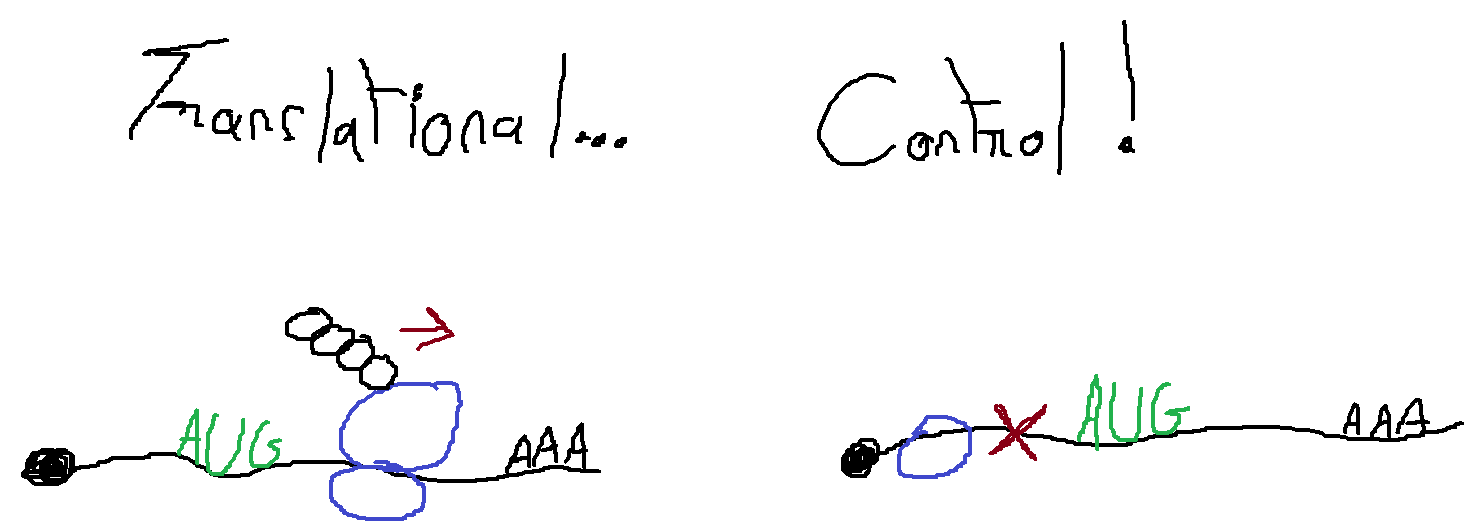 Translational... Control!
AUG AAA AUG AAA